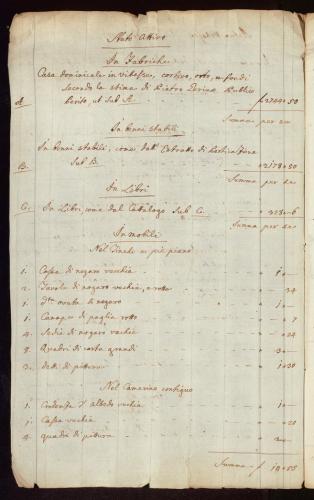 Stato Attivo
In Fabriche
Casa dominicale in cortivo, orto, e fondi
secondo la stima di Pietro Perito Publico
ut sub A.
A. f 2700 = 50
Summa per se
In beni stabili
In beni stabili, come dall' Estratto di
Sub B.
B. 2178 = 50
Summa per se
In Libri
C. In Libri come dal Cattalogo Sub C.
Summa per se
In mobili
Nel Tinello a piè piano
1. Cassa di nogaro vechia 1
2. Tavole di nogaro vechie, e rotte 34
1. detta ovata di nogaro 1
1. Canapè di paglia rotto
4. Sedie di nogaro vechie 24
8. Quadri di carta grandi 3
3. detti di pittura 1 = 30
Nel Camerino contiguo
1. Credenza d' albedo vechia 1
1. Cassa vechia 20
4. quadri di pittura
Summa f 10 = 55